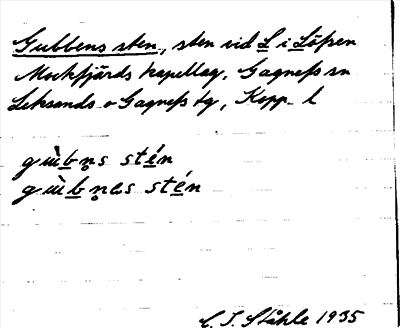 Gubbens sten, sten vid L i Löfsen
Mockfjärds kapellag, Gagnefs sn
Leksands o Gagnefs tg, Kopp. l
gɯ̀bn̥s stén
gɯ̀bn̥əs stén
C. I. Ståhle 1935